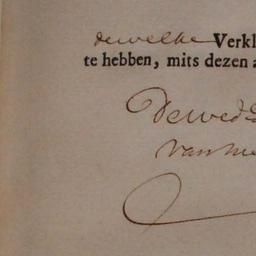 dewelke Verkl
te hebben, mits dezen a
De wed
van